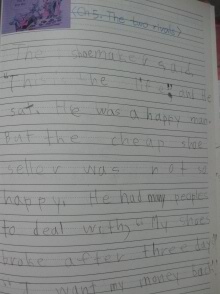 <Ch5. The two rivals>
The shoemaker said,
"This is the life" and he
sat. He was a happy man.
But the cheap shoe
seller was not so
happy. He had many people
to deal withy "My shoes
brake after three day"
"I want my money back"